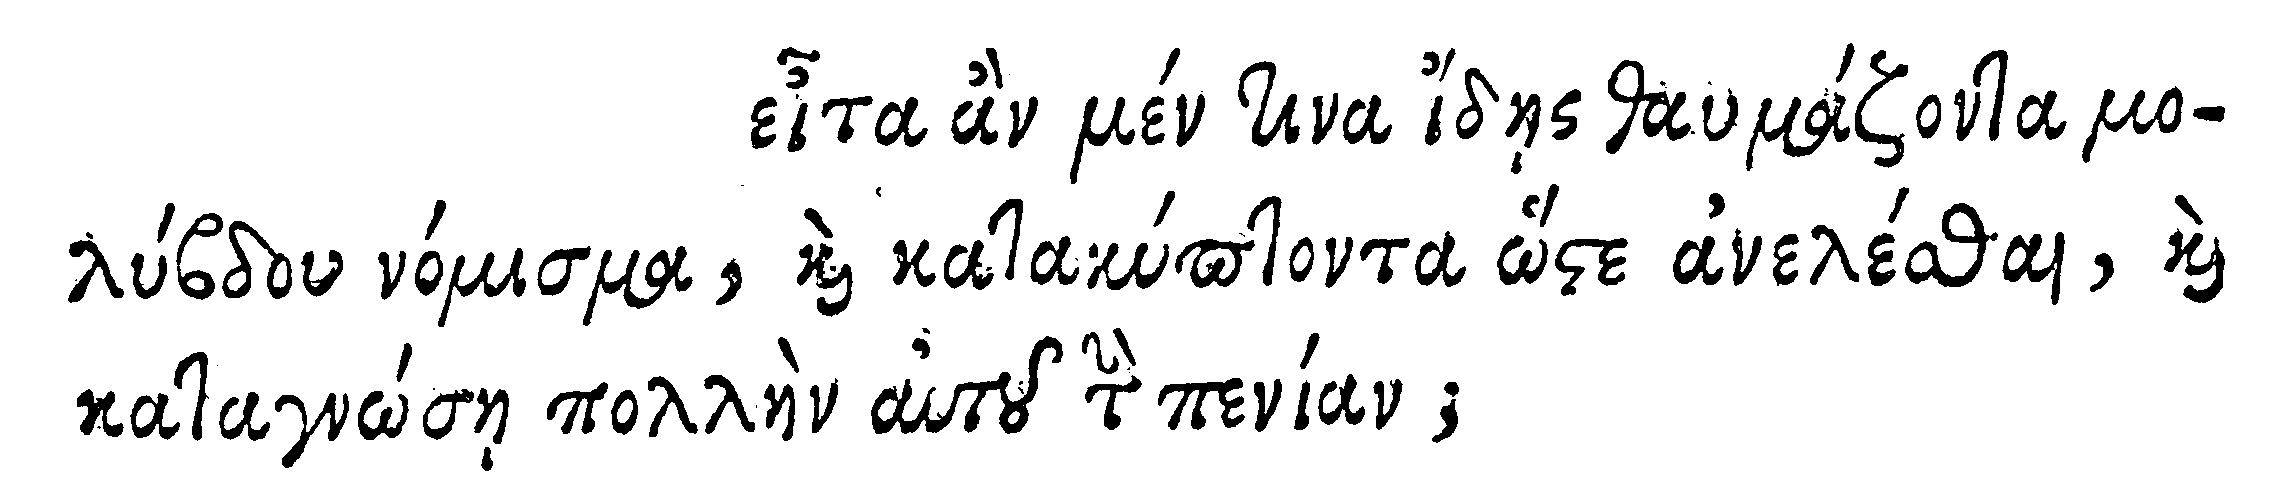 εἶτα ἂν μέν τινα ἴδῃς θαυμάζοντα μο-
λύβδου νόμισμα, καὶ κατακύπτοντα ὥστε ἀνελέσθαι, καὶ
καταγνώσῃ πολλὴν αὐτοῦ τὴν πενίαν;